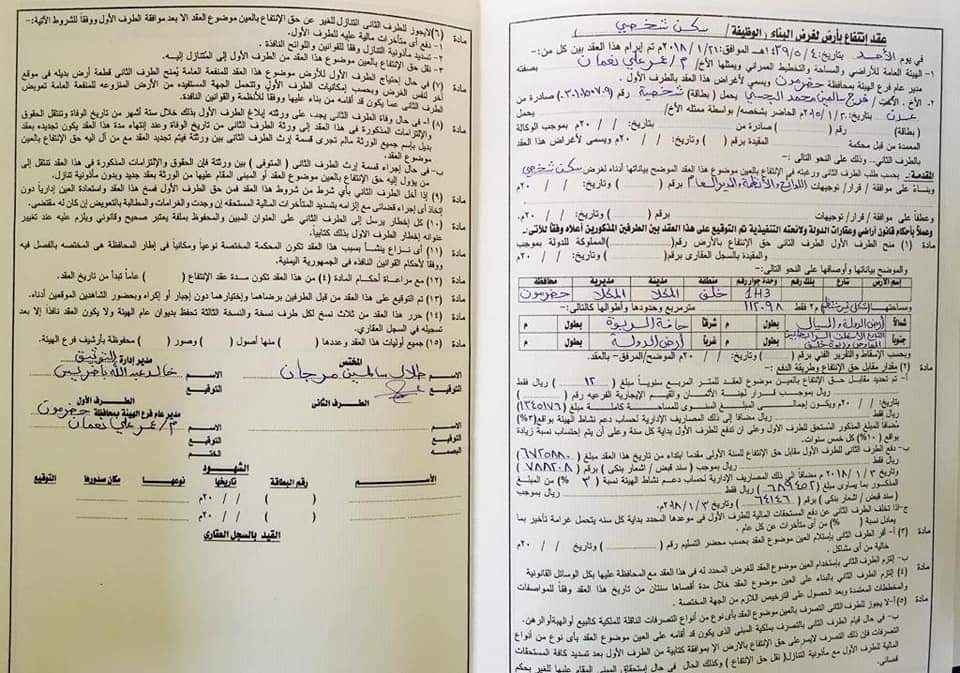 عقد إنتفاع بأرض لغرض البناء (الوظيفة / سكن شخصي )
في يوم الأحد ٥/٤/١٤٣٩هـ الموافق: ٢١/١/٢٠١٨م تم إبرام هذا العقد بين كل من:-
١- الهيئة العامة للأراضي والمساحة والتخطيط العمراني ويمثلها الأخ/ م/عمر علي نعمان بصفته
مدير عام فرع الهيئة بمحافظة حضرموت ويسمي لأغراض هذا العقد بالطرف الأول.
٢- الأخ . الأخت/ فرج سالمين محمد البحسني يحمل (بطاقة) شخصية رقم صادرة من
عدن بتاريخ: الحاضر بشخصه/ بواسطة ممثله الأخ/ يحمل
(بطاقة) رقم ( ) صادرة من بتاريخ: / / ٢٠م بموجب الوكالة
المعمدة من قبل محكمة المقيدة برقم ( ) وتاريخ: / / ٢٠م ويسمى لأغراض هذا العقد
بالطرف الثاني.. وذلك على النحو التالي :-
المقدمة:- بحسب طلب الطرف الثاني ورغبته في الإنتفاع بالعين موضوع هذا العقد الموضح بياناتها أدناه لغرض سكن شخصي
وبناءً على موافقة / قرار/ توجيهات اللوائح والأنظمة المدير العام برقم ( ) وتاريخ: / / ٢٠م
وعطفاً على موافقة / قرار/ توجيهات برقم ( ) وتاريخ: / / ٢٠م.
وعملاً بأحكام قانون أراضي وعقارات الدولة ولائحته التنفيذية تم التوقيع على هذا العقد بين الطرفين المذكورين أعلاه وفقاً للآتي:-
مادة (١) منح الطرف الأول الطرف الثاني حق الإنتفاع بالأرض رقم( ) المملوكة للدولة بموجب
المقيدة بالسجل العقاري برقم ( ) وتاريخ: / / ٢٠م
والموضح بياناتها وأوصافها على النحو التالي:-
إسم الأرض شارع بلك رقم وحدة جوار رقم منطقة مدينة مديرية محافظة
1H3 خلف المكلا المكلا حضرموت
ومساحتها م٢ فقط ١١٢٠٩٨ مترمربع وحدودها وأطوالها كالتالي:-
شمالاً أرض الدولة والجبال بطول م شرقاً حافة الربوة بطول م
جنوباً بطول م غرباً أرض الدولة بطول م
وبحسب الإسقاط والتقرير الفني رقم ( ) وتاريخ: / / ٢٠م الموضح/المرفق - بالعقد.
مادة (٢) مقدار مقابل حق الإنتفاع وطريقة الدفع :-
أ- تم تحديد مقابل حق الإنتفاع بالعين موضوع العقد للمتر المربع سنوياً مبلغ ( ١٢ ) ريال فقط
ريال بموجب قرار لجنة الأثمان والقيم الإيجارية الفرعيه رقم ( )
بتاريخ: / / ٢٠م ويكون إجمالي المبلغ السنوي للمساحة كاملة مبلغ (١٣٤٥١٧٦)
ريال فقط ريال مضافاً إلى ذلك المصاريف الإدارية لحساب دعم نشاط الهيئة بواقع (٣%)
مضافا للمبلغ المذكور المستحق للطرف الأول وعلى ان تدفع للطرف الأول بداية كل سنة وعلى أن يتم إحتساب نسبة زيادة
بواقع (١٠%) كل خمس سنوات.
ب- دفع الطرف الثاني للطرف الأول مقابل حق الإنتفاع للسنة الأولى مقدما ابتداء من تاريخ هذا العقد مبلغ (٦٧٢٥٨٨٠)
ريال فقط ريال بموجب ( سند قبض / اشعار بنكي ) برقم ( ٧٨٨٢٠٨ )
وتاريخ ٣/١/٢٠١٨م مضافاً إلى ذلك المصاريف الإدارية لحساب دعم نشاط الهيئة نسبة ( ٣ %) من المبلغ
المذكور بما يساوي مبلغ ( ) ريال فقط ريال بموجب
( سند قبض / اشعار بنكي ) برقم ( ٦٤١٤٦ ) وتاريخ: ٣/١/٢٠١٨م.
ج- إذا تخلف الطرف الثاني عن دفع المستحقات المالية للطرف الأول في موعدها المحدد بداية كل سنه يتحمل غرامة تأخير بما
يعادل نسبة ( %) من أي متأخرات عن كل عام .
مادة (٣) أ- أقر الطرف الثاني بإستلام العين موضوع العقد بحسب محضر التسليم رقم ( ) وتاريخ: / / ٢٠م
خالية من أي مشاكل .
ب- إلتزم الطرف الثاني بإستخدام العين موضوع العقد للغرض المحدد له في هذا العقد مع المحافظة عليها بكل الوسائل القانونية
مادة (٤) إلتزم الطرف الثاني بالبناء على العين موضوع العقد خلال مدة أقصاها سنتان من تاريخ هذا العقد وفقاً للمواصفات
والمخططات المعتمدة وبعد الحصول على الترخيص اللازم من الجهة المختصة .
مادة (٥) أ- لا يجوز للطرف الثاني التصرف بالعين موضوع العقد بأي نوع من أنواع التصرفات الناقلة للملكية كالبيع أوالهبةأوالرهن.
ب- في حال قيام الطرف الثاني بالتصرف بملكية المبنى الذي يكون قد أقامه على العين موضوع العقد بأي نوع من أنواع
التصرفات فإن ذلك التصرف لايسري على حق الإنتفاع بالأرض إلا بموافقة كتابية من الطرف الأول بعد تسديد كافة المستحقات
المالية للطرف الأول مع مأذونية التنازل( نقل حق الإنتفاع ) وكذلك الحال في حال إستحقاق المبنى المقام عليها للغير بحكم
قضائي.
مادة (٦) لايجوز للطرف الثاني التنازل للغير عن حق الإنتفاع بالعين موضوع العقد الا بعد موافقة الطرف الأول وفقاً للشروط الآتية:-
١- دفع أي متأخرات مالية عليه للطرف الأول.
٢- تسديد مأذونية التنازل وفقاً للقوانين واللوائح النافذة .
٣- نقل حق الإنتفاع بالعين موضوع هذا العقد من الطرف الأول إلى المتنازل إليه.
مادة (٧) في حال إحتياج الطرف الأول للأرض موضوع هذا العقد للمنفعة العامة يُمنح الطرف الثاني قطعة أرض بديله في موقع
آخر لنفس الغرض وبحسب إمكانيات الطرف الأول وتتحمل الجهة المستفيده من الأرض المنزوعه للمنفعة العامة تعويض
الطرف الثاني عما يكون قد أقامه من بناء عليها ووفقاً للأنظمة والقوانين النافذة.
مادة (٨) أ- في حال وفاة الطرف الثاني يجب على ورثته إبلاغ الطرف الأول بذلك خلال ستة أشهر من تاريخ الوفاة وتنتقل الحقوق
والإلتزامات المذكورة في هذا العقد إلى ورثة الطرف الثاني من تاريخ الوفاة وعند إنتهاء مدة هذا العقد يكون تجديده بعقد
بديل بإسم جميع الورثة مالم تجرى قسمة إرث الطرف الثاني بين ورثته فيتم تجديد العقد مع من آل اليه حق الإنتفاع بالعين
موضوع العقد.
ب- في حال إجراء قسمة إرث الطرف الثاني ( المتوفي ) بين ورثته فإن الحقوق والإلتزامات المذكورة في هذا العقد تنتقل إلى
من يؤول إليه حق الإنتفاع بالعين موضوع العقد أو المبنى المقام عليها من الورثة بعقد جديد وبدون مأذونية تنازل.
مادة (٩) إذا أخل الطرف الثاني بأي شرط من شروط هذا العقد فمن حق الطرف الأول فسخ هذا العقد واستعادة العين إدارياً دون
إتخاذ أي إجراء قضائي مع إلزامه بتسديد المتأخرات المالية المستحقه إن وجدت والغرامات والمطالبة بالتعويض إن كان له مقتضى.
مادة (١٠) كل إخطار يرسل إلى الطرف الثاني على العنوان المبين والمحفوظ بملفة يعتبر صحيح وقانوني ويلزم عليه عند تغيير
عنوانه إخطار الطرف الأول بذلك كتابياً.
مادة (١١) أي نزاع ينشأ بسبب هذا العقد تكون المحكمة المختصة نوعياً ومكانياً في إطار المحافظة هي المختصه بالفصل فيه
ووفقاً لأحكام القوانين النافذه في الجمهورية اليمنية.
مادة (١٢) مع مراعاة أحكام المادة (٤) من هذا العقد تكون مدة عقد الإنتفاع ( ) عاماً تبدأ من تاريخ العقد.
مادة (١٣) تم التوقيع على هذا العقد من قبل الطرفين برضاهما وإختيارهما دون إجبار أو إكراه وبحضور الشاهدين الموقعين أدناه.
مادة (١٤) حرر هذا العقد من ثلاث نسخ لكل طرف نسخة والنسخة الثالثة تحفظ بديوان عام الهيئة ولا يكون العقد نافذاً إلا بعد
تسجيله في السجل العقاري.
مادة (١٥) جميع أوليات هذا العقد وعددها ( ) منها أصول ( ) وصور ( ) محفوظة بأرشيف فرع الهيئة.
المختص مدير إدارة التوثيق
الاسم طلال سالمين مرجان الاسم خالد عبدالله باخريس
التوقيع التوقيع
الطرف الثاني الطرف الأول
مدير عام فرع الهيئة بمحافظة حضرموت
الاسم الاسم م/عمر علي نعمان
التوقيع التوقيع
البصمه الختم
الشهود
الأسم رقم البطاقة تاريخها نوعها مكان صدورها التوقيع
( ) / / ٢٠م
( ) / / ٢٠م
القيد بالسجل العقاري